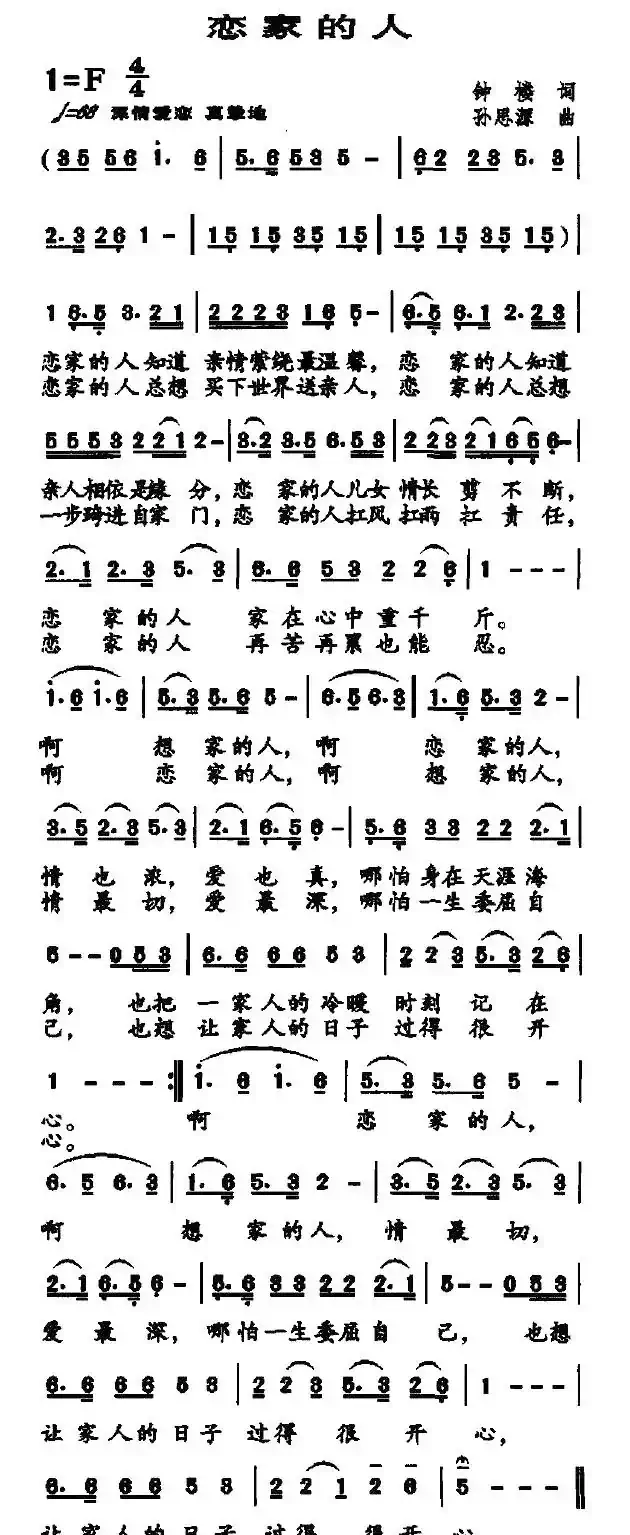 恋家的人
1=F 4/4
♩=68 深情爱恋 真挚地
钟楼 词
孙思源 曲
(35 56 i. 6 | 5.6 53 5 - | 62 23 5. 3 |
2.3 26 1 - | 15 15 35 15 | 15 15 35 15) |
1 6.5 3. 21 | 2223 16 5 - | 6.5 6.1 2. 23 |
恋家的人知道 亲情萦绕最温馨，恋 家的人知道
恋家的人总想 买下世界送亲人，恋 家的人总想
5553 221 2 - | 3.2 3.5 6. 53 | 223 2165 6 - |
亲人相依是缘 分，恋 家的人儿女 情长 剪 不 断，
一步跨进自家 门，恋 家的人扛风 扛雨 扛 责 任，
2. 1 2. 3 5. 3 | 6. 6 5 3 2 2 6 | 1 - - - |
恋 家 的 人 家 在 心 中 重 千 斤。
恋 家 的 人 再 苦 再 累 也 能 忍。
i. 6 i. 6 | 5.3 5.6 5 - | 6.5 6.3 | 1.6 5.3 2 - |
啊 想 家 的 人， 啊 恋 家 的 人，
啊 恋 家 的 人， 啊 想 家 的 人，
3.5 2.3 5.3 | 2.1 6.5 6 - | 5.6 33 22 2.1 |
情 也 浓， 爱 也 真， 哪怕 身在 天涯 海
情 最 切， 爱 最 深， 哪怕 一生 委屈 自
5 - - 0 5 3 | 6. 6 6 6 5 3 | 2 2 3 5. 3 2 6 |
角， 也把 一 家 人 的 冷暖 时刻 记 在
己， 也想 让 家 人 的 日子 过得 很 开
1 - - - :‖ i. 6 i. 6 | 5. 3 5. 6 5 - |
心。 啊 恋 家 的 人，
心。
6. 5 6. 3 | 1. 6 5. 3 2 - | 3. 5 2. 3 5. 3 |
啊 想 家 的 人， 情 最 切，
2. 1 6. 5 6 - | 5.6 33 22 2.1 | 5 - - 0 53 |
爱 最 深，哪怕 一生 委屈 自 己， 也想
6. 6 66 5 3 | 2 2 3 5. 3 2 6 | 1 - - - |
让 家 人 的 日 子 过 得 很 开 心，
6. 6 6 6 5 3 | 2 2 1 2 6 | 5 - - - ‖
让 家 人 的 日 子 过 得 得 开 心